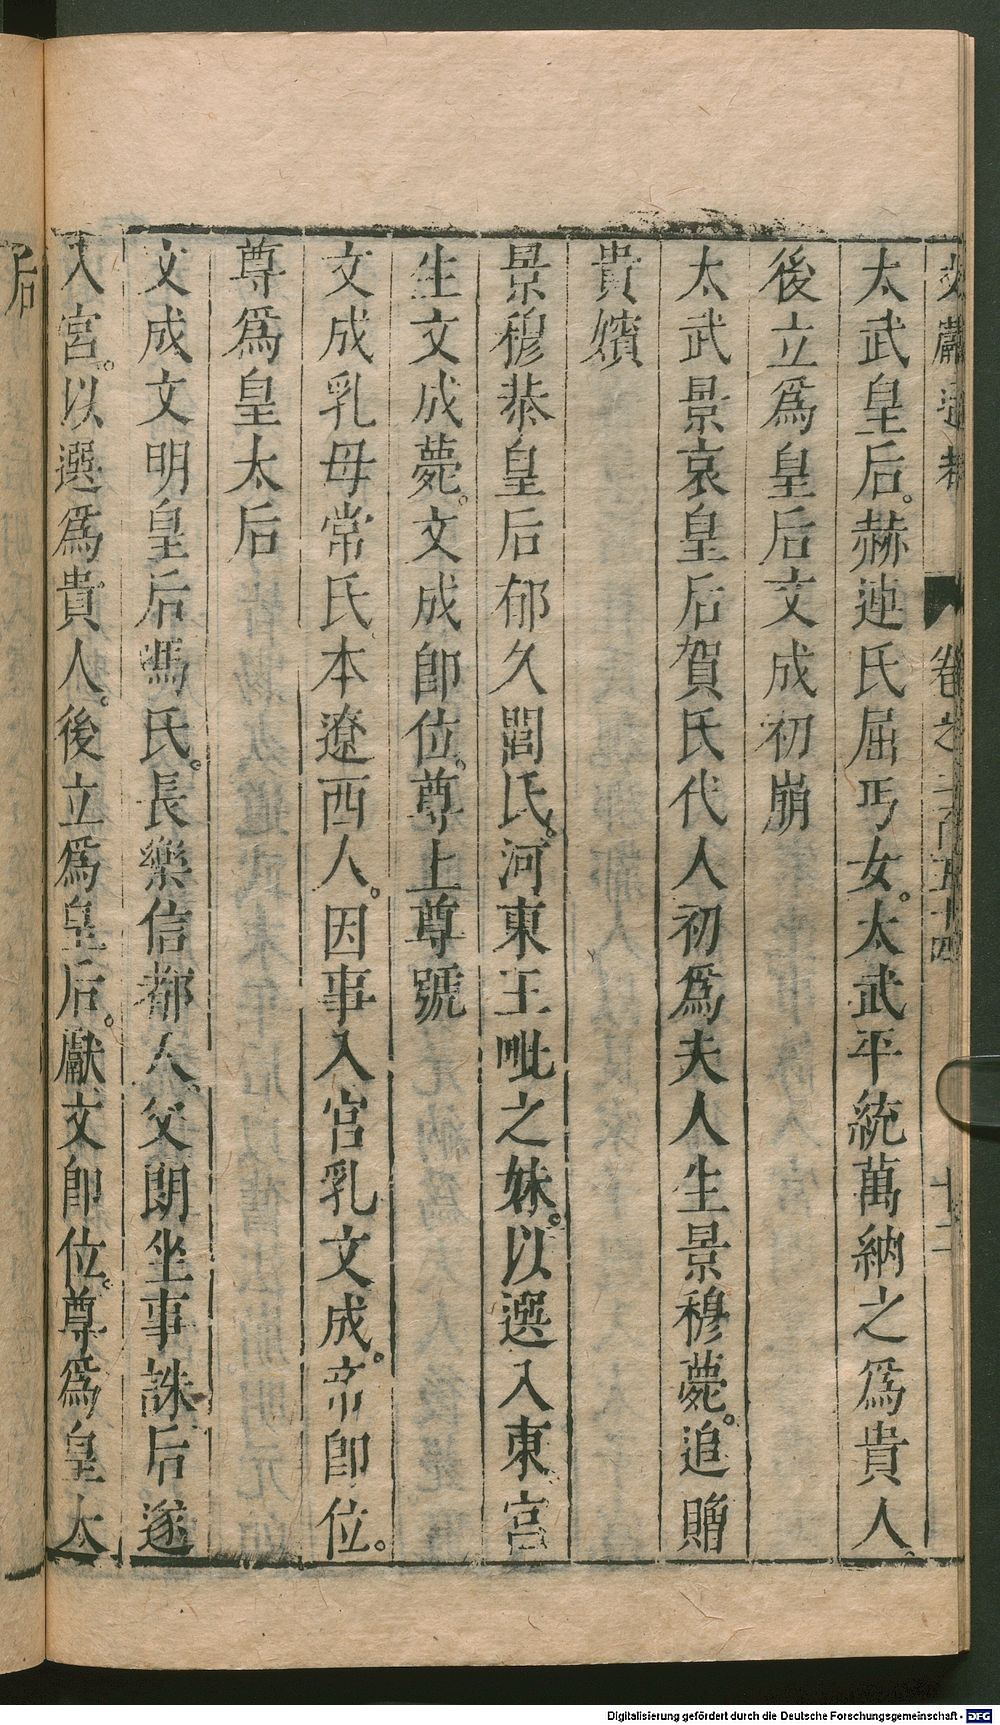 文獻通考 卷之二百五十四 十一
太武皇后。赫連氏屈丐女。太武平統萬納之爲貴人。
後立爲皇后文成初崩
太武景哀皇后賀氏代人初爲夫人生景穆薨。追贈
貴嬪
景穆恭皇后郁久閭氏。河東王毗之妹。以選入東宮
生文成薨。文成卽位。尊上尊號
文成乳母常氏本遼西人。因事入宮乳文成。帝卽位。
尊爲皇太后
文成文明皇后馮氏。長樂信都人。父朗坐事誅后遂
入宮。以選爲貴人。後立爲皇后。獻文卽位。尊爲皇太
后
Digitalisierung gefördert durch die Deutsche Forschungsgemeinschaft - DFG